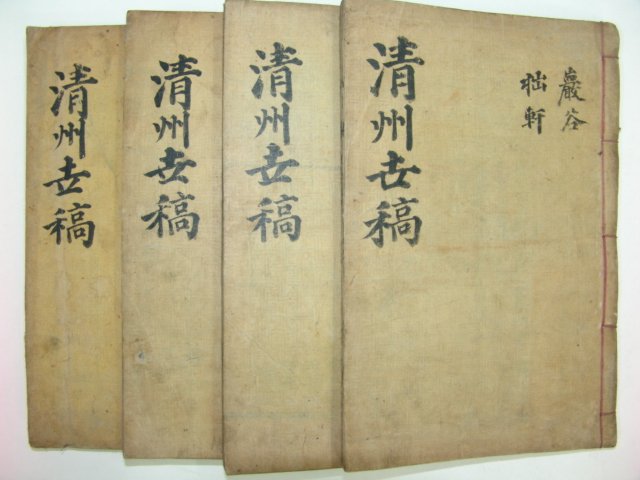 巖谷
拙軒
清州世稿
清州世稿
清州世稿
清州世稿